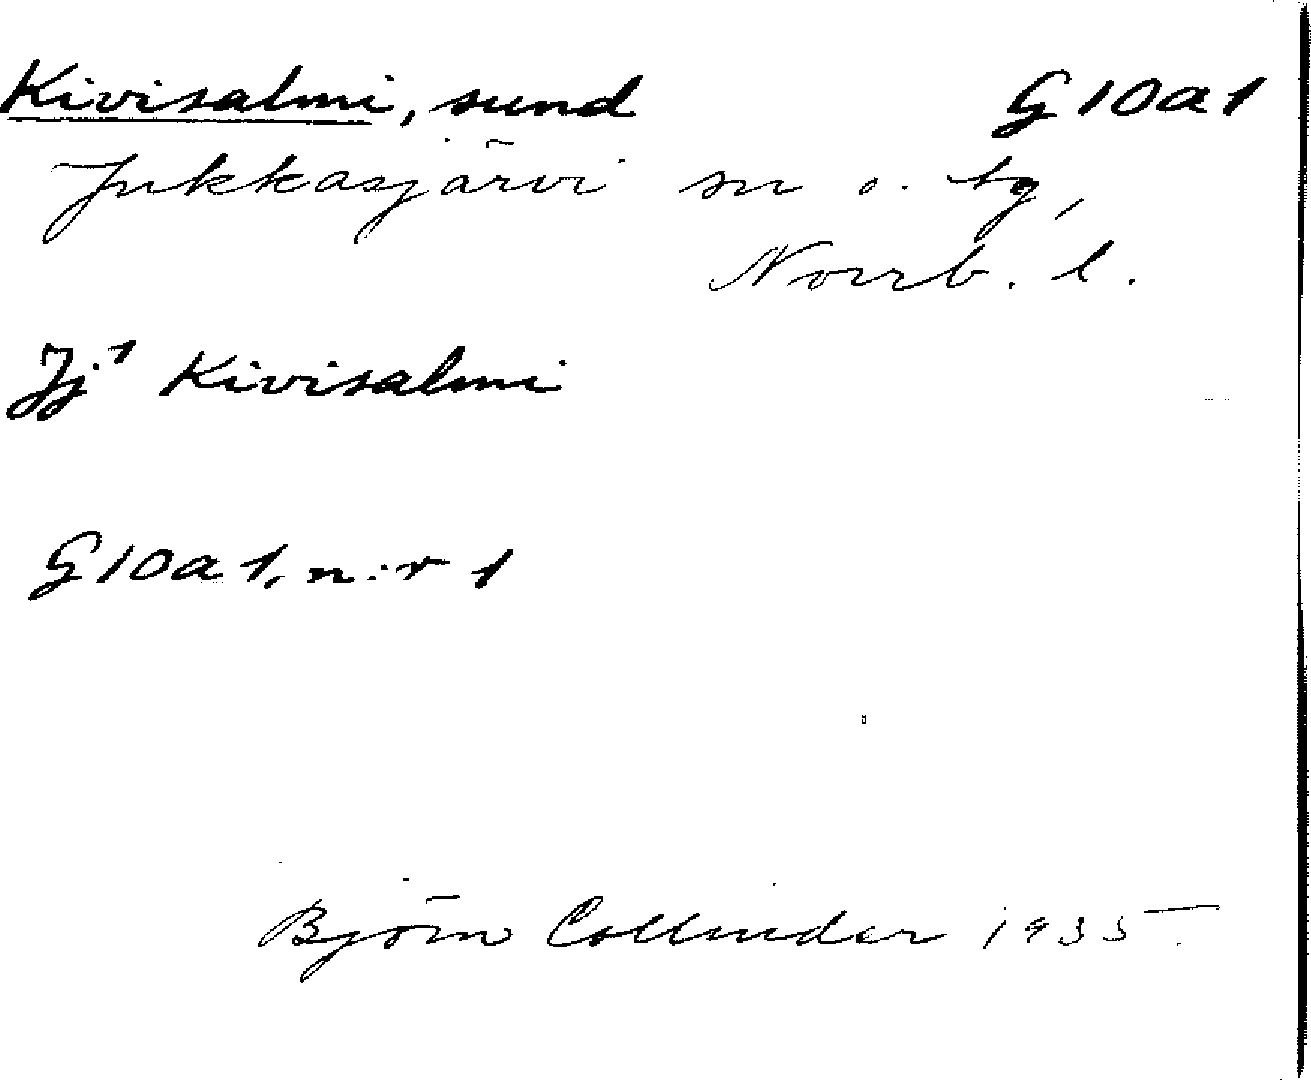 Kivisalmi, sund G10a1
Jukkasjärvi sn o. tg,
Norrb. l.
Jj¹ Kivisalmi
G10a1, n:r 1
Björn Collinder 1935.